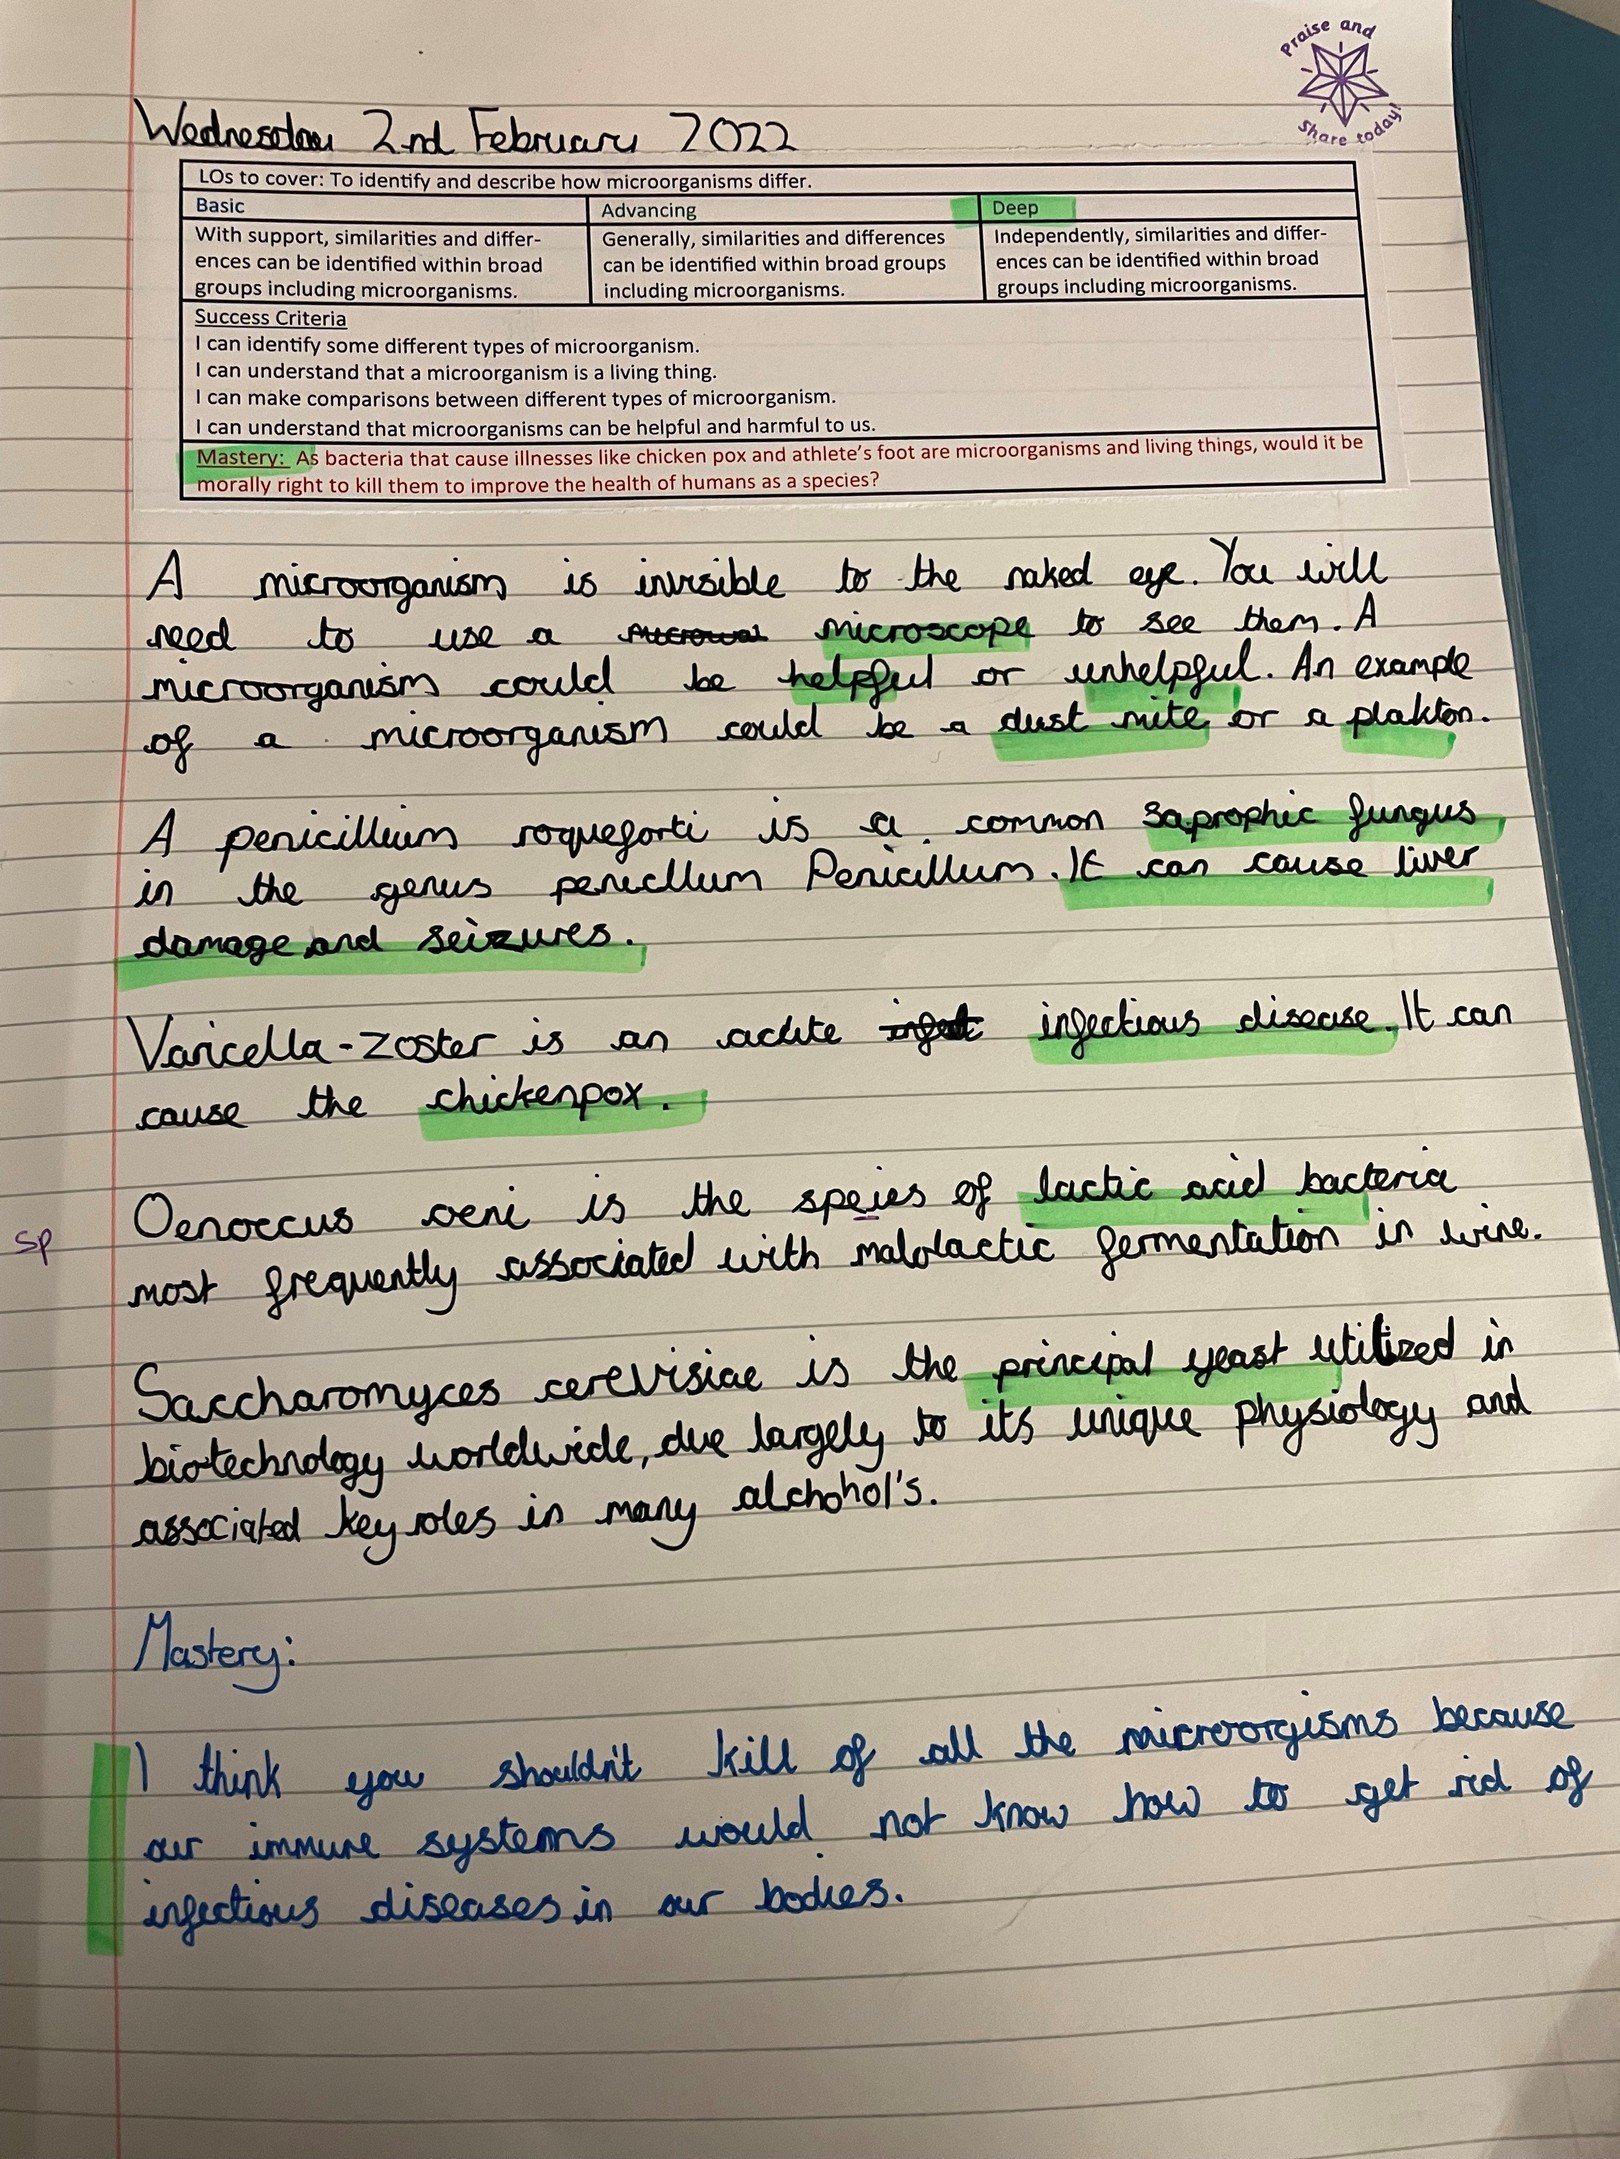 Praise and
Share today!
Wednesday 2nd February 2022
LOs to cover: To identify and describe how microorganisms differ.
Basic
Advancing
Deep
With support, similarities and differ-
ences can be identified within broad
groups including microorganisms.
Generally, similarities and differences
can be identified within broad groups
including microorganisms.
Independently, similarities and differ-
ences can be identified within broad
groups including microorganisms.
Success Criteria
I can identify some different types of microorganism.
I can understand that a microorganism is a living thing.
I can make comparisons between different types of microorganism.
I can understand that microorganisms can be helpful and harmful to us.
Mastery: As bacteria that cause illnesses like chicken pox and athlete's foot are microorganisms and living things, would it be
morally right to kill them to improve the health of humans as a species?
A microorganism is invisible to the naked eye. You will
need to use a microscope to see them. A
microorganism could be helpful or unhelpful. An example
of a microorganism could be a dust mite or a plakton.
A penicillium roqueforti is a common saprophic fungus
in the genus penicllum Penicillum. It can cause liver
damage and seizures.
Varicella-zoster is an acute infectious disease. It can
cause the chickenpox.
Oenoccus oeni is the speies of lactic acid bacteria
sp
most frequently associated with malolactic fermentation in wine.
Saccharomyces cerevisiae is the principal yeast utilized in
biotechnology worldwide, due largely to its unique physiology and
associated key roles in many alchohol's.
Mastery:
I think you shouldn't kill of all the microorgisms because
our immune systems would not know how to get rid of
infectious diseases in our bodies.